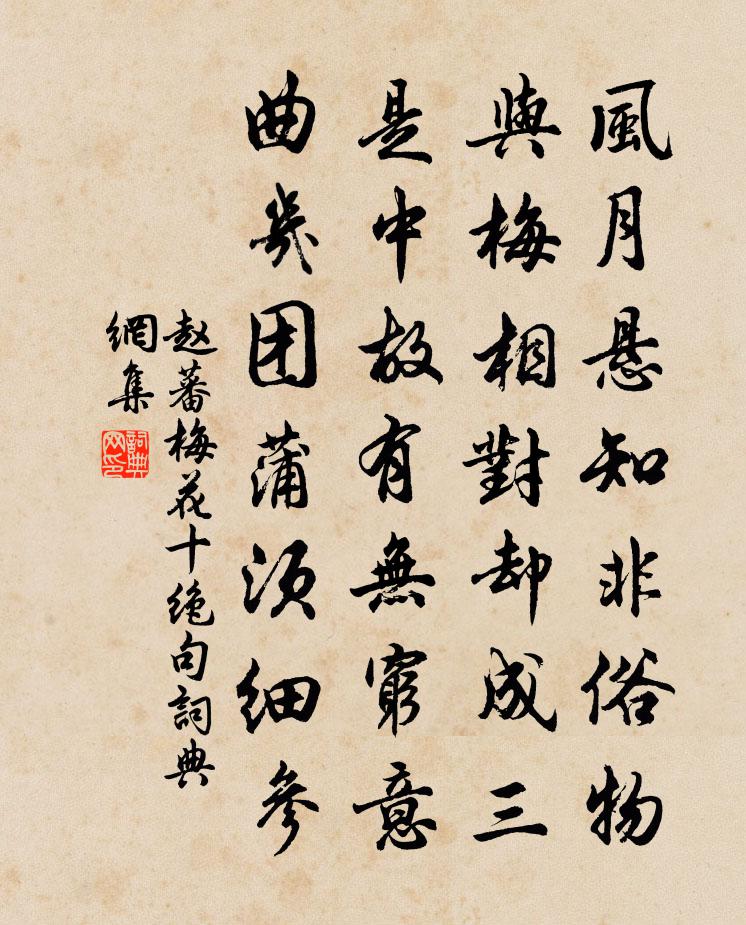 風月悬知非俗物
與梅相對却成三
是中故有無窮意
曲几团蒲须细參
赵蕃梅花十绝句詞典
網集
詞典网印